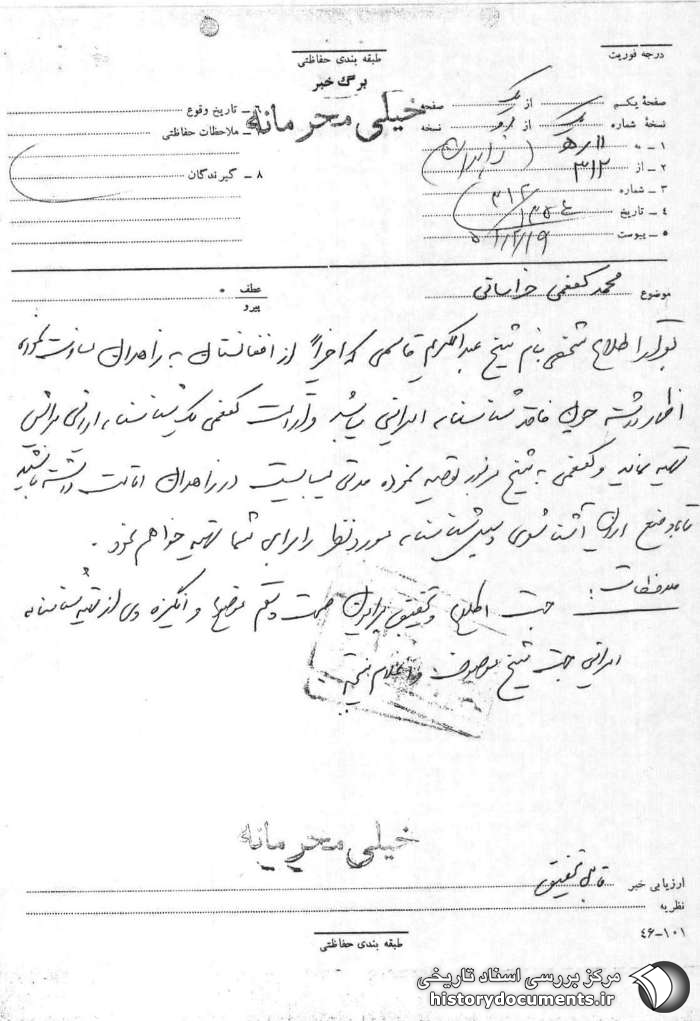 درجه فوریت
طبقه بندی حفاظتی
برگ خبر
خیلی محرمانه
صفحهٔ یکم از یک صفحه
نسخهٔ شماره از نسخه
۱ - به ۵ ر ۱۱
۲ - از ۳۱۲ (زاهدان)
۳ - شماره ۳۱۲
۴ - تاریخ
۵ - پیوست
۶ - تاریخ وقوع
۷ - ملاحظات حفاظتی
۸ - گیرندگان
موضوع محمد کفعمی خراسانی
عطف
پیرو
برابر اطلاع شخصی بنام شیخ عبدالکریم قاسمی که اخیراً از افغانستان به زاهدان مسافرت نموده
اظهار داشته چون فاقد شناسنامه ایرانی میباشد و قرار است کفعمی یک شناسنامه ایرانی برایش
تهیه نماید و کفعمی به شیخ مزبور توصیه نموده مدتی میبایست در زاهدان اقامت داشته باشید
تا بوضع ایران آشنا شوی و سپس شناسنامه مورد نظر را برای شما تهیه خواهم نمود .
ملاحظات : جهت اطلاع و تحقیق پیرامون صحت و سقم موضوع و انگیزه وی از تهیه شناسنامه
ایرانی جهت شیخ موصوف و اعلام نتیجه
خیلی محرمانه
ارزیابی خبر قابل تحقیق
نظریه
۴۶-۱۰۱
طبقه بندی حفاظتی
مرکز بررسی اسناد تاریخی
historydocuments.ir